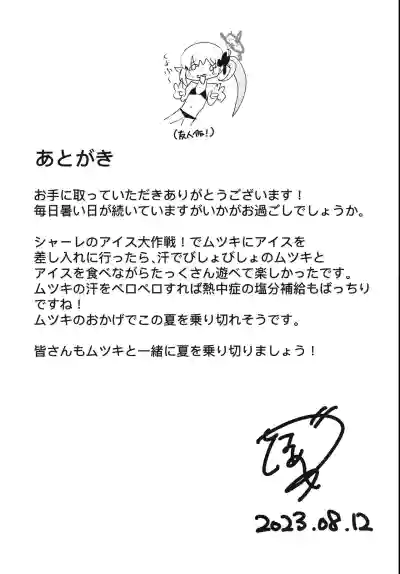 (友人作!)
あとがき
お手に取っていただきありがとうございます！
毎日暑い日が続いていますがいかがお過ごしでしょうか。
シャーレのアイス大作戦！でムツキにアイスを
差し入れに行ったら、汗でびしょびしょのムツキと
アイスを食べながらたっくさん遊べて楽しかったです。
ムツキの汗をペロペロすれば熱中症の塩分補給もばっちり
ですね！
ムツキのおかげでこの夏を乗り切れそうです。
皆さんもムツキと一緒に夏を乗り切りましょう！
2023.08.12